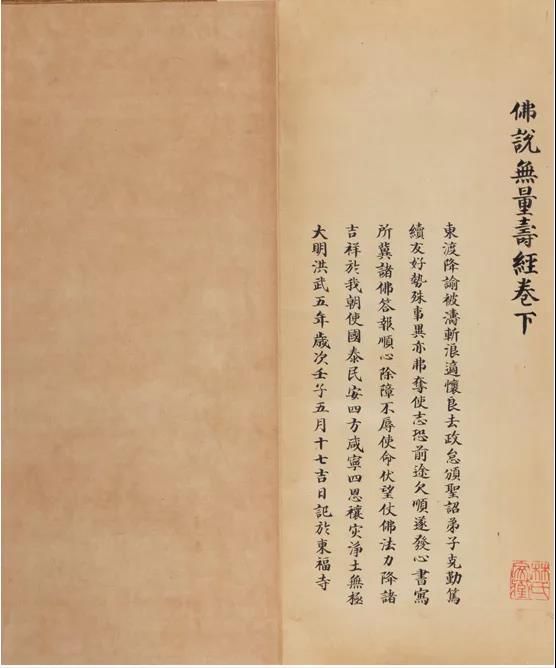 佛說無量壽經卷下
東渡降諭被濤斬浪適懷良去政怠頒聖詔弟子克勤篤
續友好勢殊事異亦弗奪使志恐前途欠順遂發心書寫
所冀諸佛答報順心除障不辱使命伏望仗佛法力降諸
吉祥於我朝使國泰民安四方咸寧四恩穰实淨土無極
大明洪武五年歲次壬子五月十七吉日記於東福寺
林氏